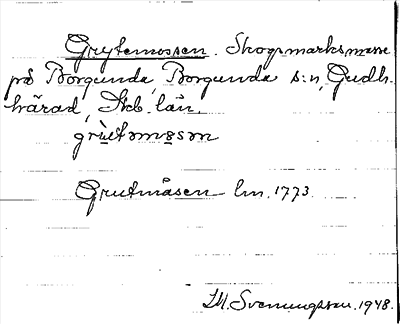 Grytemossen. Skogsmarksmosse
på Borgunda, Borgunda s:n, Gudh.
härad, Skb. län.
grùetəmøsəm
Grutmåsen lm. 1773.
M. Svenungsson. 1948.